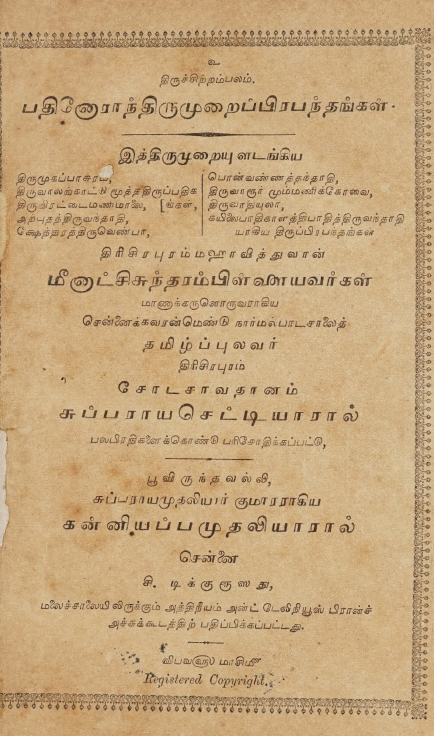 உ
திருச்சிற்றம்பலம்.
பதினோராந்திருமுறைப்பிரபந்தங்கள்.
இத்திருமுறையுளடங்கிய
திருமுகப்பாசுரம்,
திருவாலங்காட்டு மூத்ததிருப்பதிக
திருவிரட்டைமணிமாலை, [ங்கள்,
அற்புதத்திருவந்தாதி,
க்ஷேத்தரத்திருவெண்பா,
பொன்வண்ணத்தந்தாதி,
திருவாரூர் மும்மணிக்கோவை,
திருவாதியுலா,
கயிலைபாதிகாளத்திபாதித்திருவந்தாதி
யாகிய திருப்பிரபந்தங்கள்
திரிசிரபுரம்மஹாவித்துவான்
மீனாட்சிசுந்தரம்பிள்ளையவர்கள்
மாணாக்கருளொருவராகிய
சென்னைக்கவரன்மெண்டு நார்மல்பாடசாலைத்
தமிழ்ப்புலவர்
திரிசிரபுரம்
சோடசாவதானம்
சுப்பராயசெட்டியாரால்
பலபிரதிகளைக்கொண்டு பரிசோதிக்கப்பட்டு,
பூவிருந்தவல்லி,
சுப்பராயமுதலியார் குமாரராகிய
கன்னியப்பமுதலியாரால்
சென்னை
சி. டிக்குரூஸது,
மலைச்சாலையிலிருக்கும் அத்திநீயம் அன்ட் டேலிநியூஸ் பிரான்ச்
அச்சுக்கூடத்திற் பதிப்பிக்கப்பட்டது.
விபவஹு மாசிமீ
Registered Copyright.